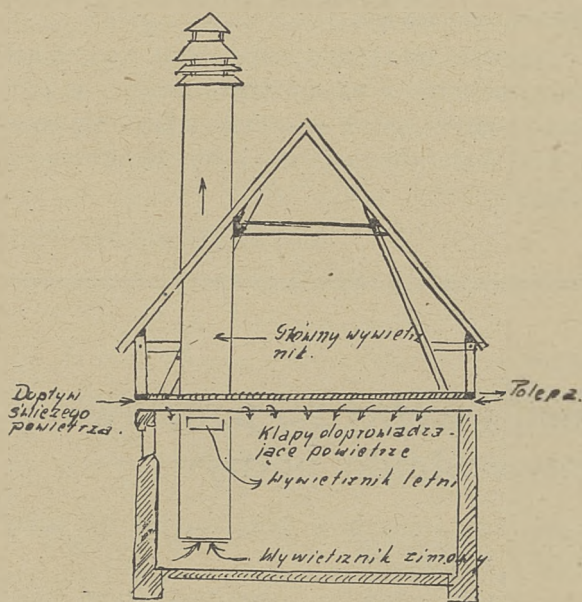 Główny wywietrz
nik.
Dopływ
świeżego
powietrza.
Polepa.
Klapy doprowadza-
jące powietrze
Wywietrznik letni
Wywietrznik zimowy